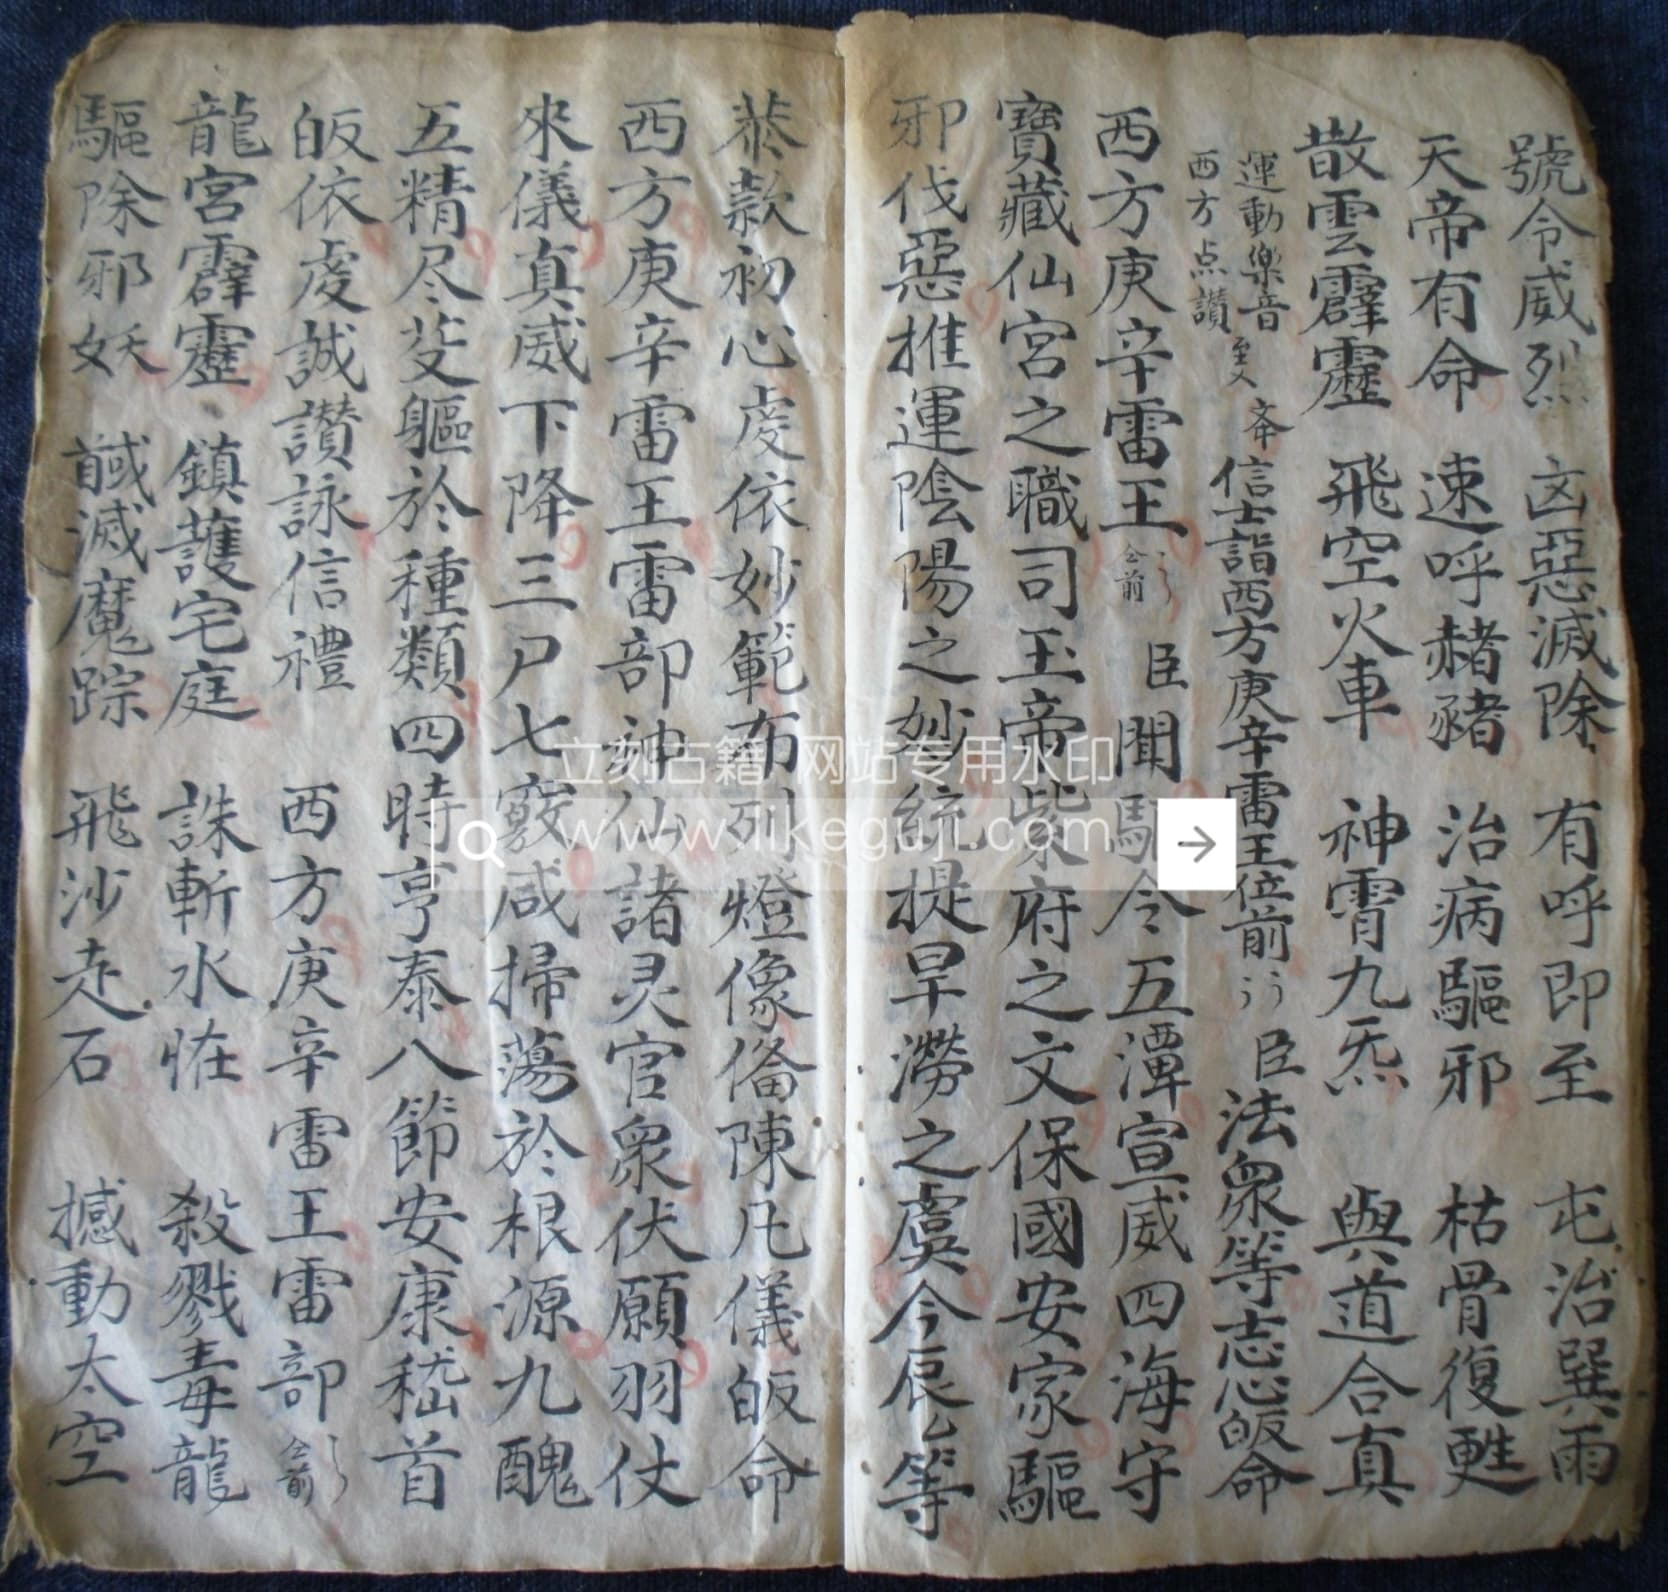 號令威烈 凶惡滅除 有呼即至 屯治巽雨
天帝有命 速呼赭豬 治病驅邪 枯骨復甦
散雲霹靂 飛空火車 神霄九炁 與道合真
運動樂音
西方点讚 至 夲信士詣西方庚辛雷王位前 臣法眾等志心皈命
西方庚辛雷王 仝前 臣聞馭令五潭宣威四海守
寶藏仙宮之職司玉帝紫府之文保國安家驅
邪伐惡推運陰陽之妙統提旱澇之虞今辰等
恭款初心虔依妙範布列燈像俻陳凡儀皈命
西方庚辛雷王雷部神仙諸灵官眾伏願羽仗
來儀真威下降三尸七竅咸掃蕩於根源九醜
五精尽芟軀於種類四時亨泰八節安康嵇首
皈依虔誠讚詠信禮 西方庚辛雷王雷部 仝前
龍宮霹靂 鎮護宅庭 誅斬水恠 殺戮毒龍
驅除邪妖 馘滅魔踪 飛沙走石 撼動太空
立刻古籍 网站专用水印
www.likeguji.com